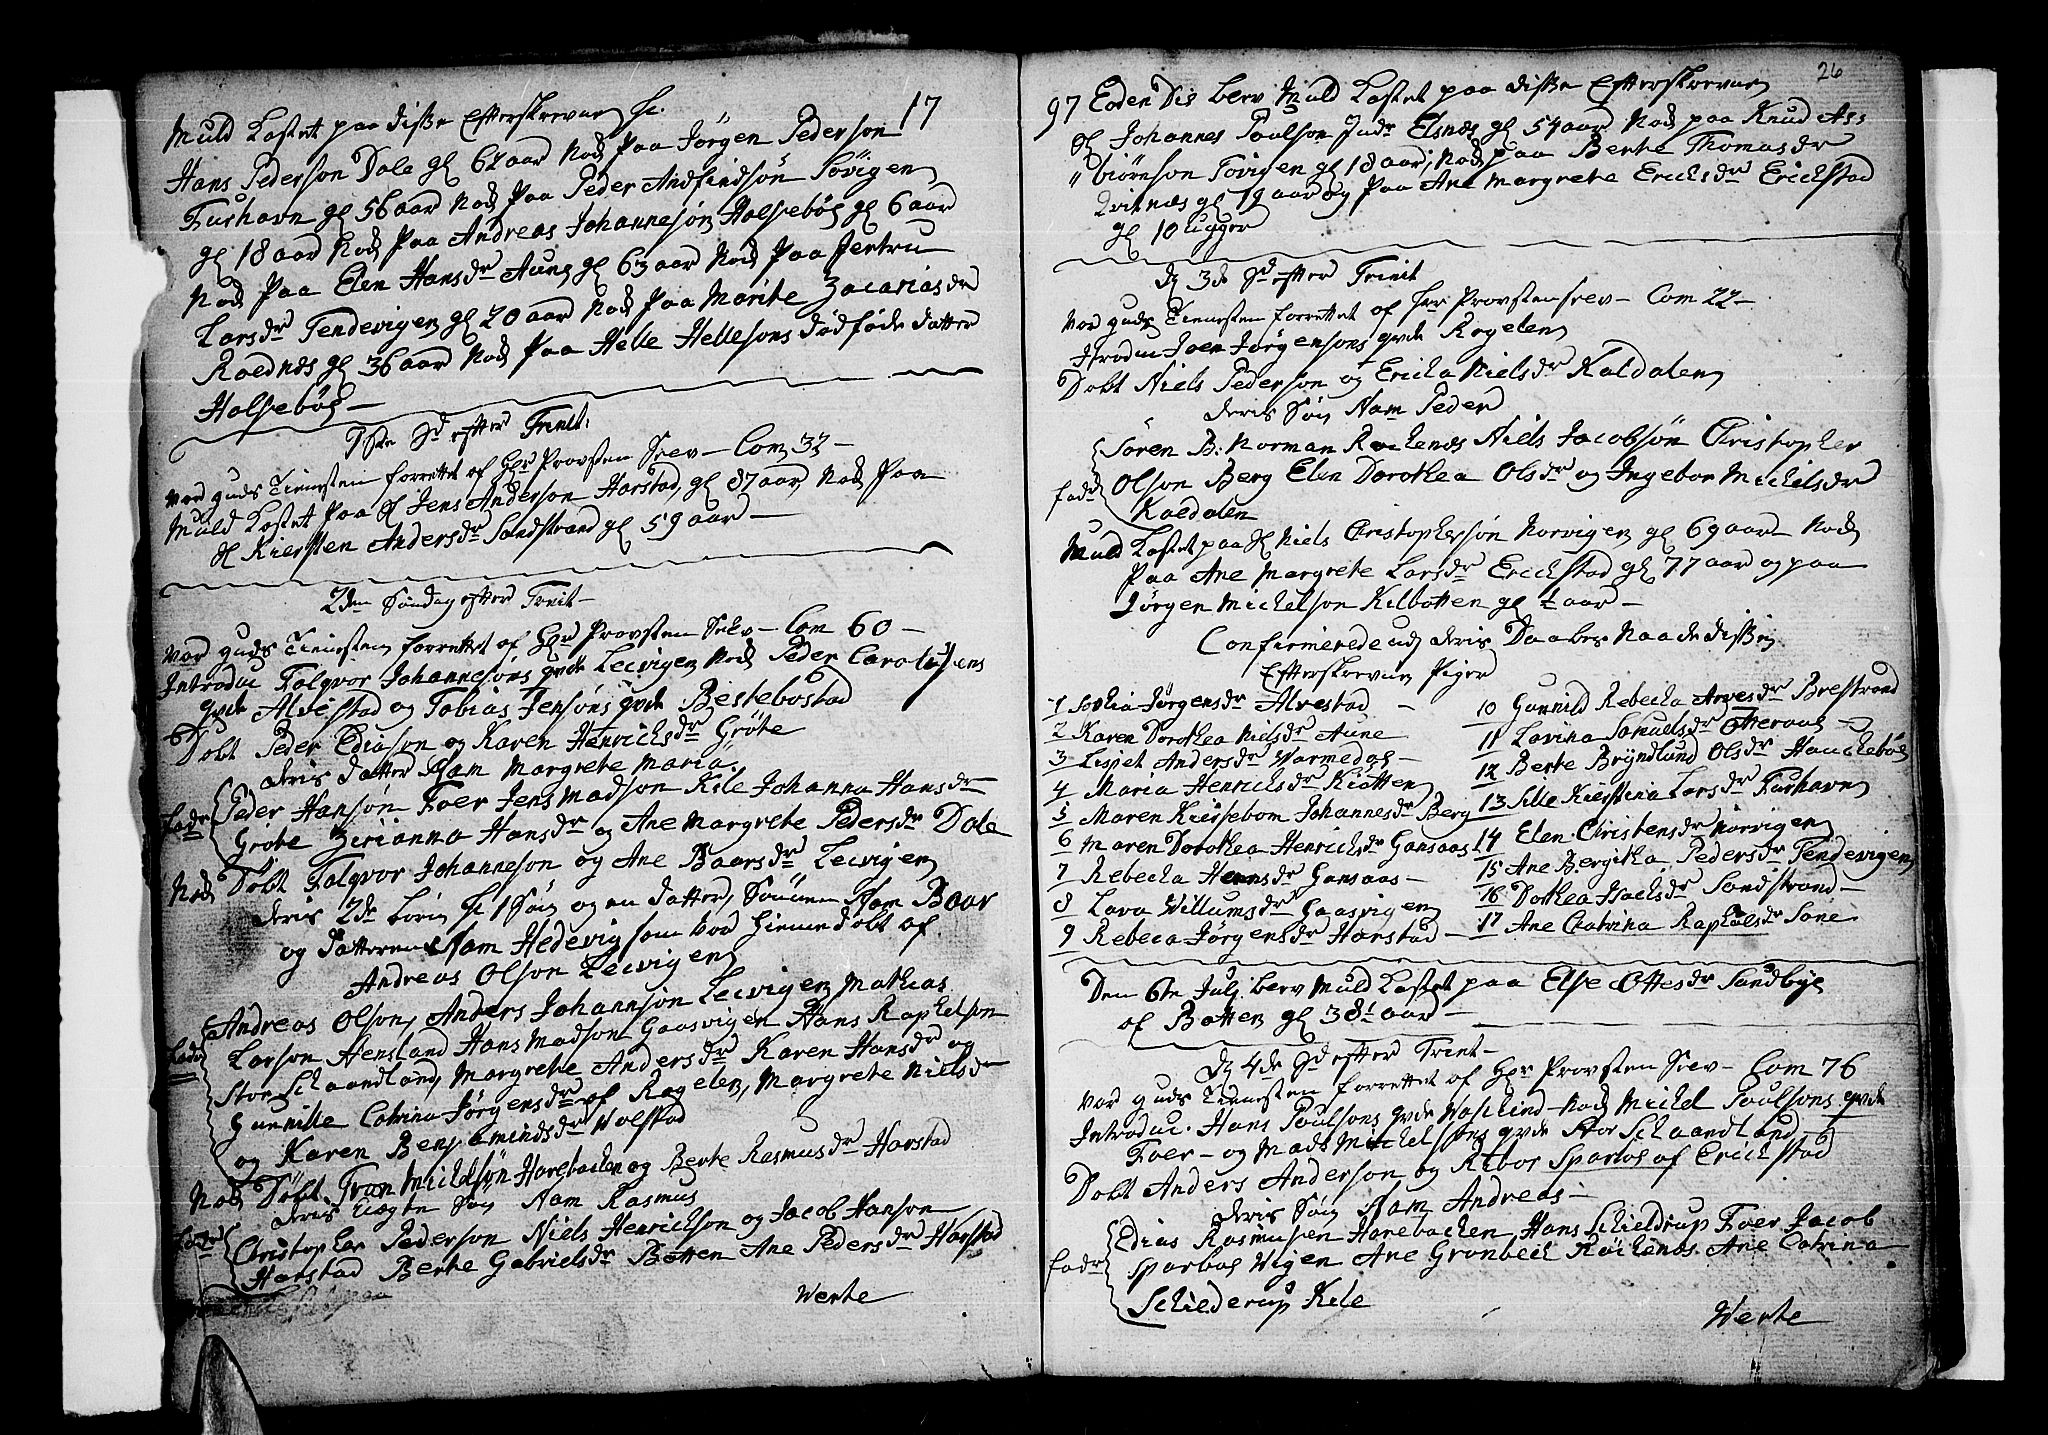 17
Muld Kastet paa disse Efterskrevne sc.
Hans Pederson Dale gl 62 aar Nok Paa Jörgen Pederson
Furhavn gl 56 aar Nok Paa Peder Andfindsön Sövigen
gl 18 aar Nok Paa Andreas Johannesön Halsebös gl 6 aar
Nok Paa Elen Hansdr Aune gl 63 aar Nok Paa Jertru
Larsdr Tendevigen gl 20 aar Nok Paa Marite Zacariasdr
Roednæs gl 36 aar Nok Paa Helle Hellesöns dödföde datter
Halsebös —
1ste Sd efter Trinit:
Var guds Tienesten forrettet af Hr Provsten Srev — Com 33 —
Muld Kastet Paa sl Jens Anderson Harstad, gl 87 aar, Nok Paa
sl Kiersten Andersdr Sandstrand gl 59 aar —
2den Söndag efter Trinit —
Var guds Tienesten forrettet af Hr Provsten Srev — Com 60 —
Introduc Falqvor Johannesöns qvde Lecvigen Nok Peder Carolusens
qvde Alvestad og Tobias Jensöns qvde Bestebostad
Döbt Peder Ediason og Karen Henrichsdr Gröte
deris datter Nam Margrete Maria.
fadr Peder Hansön Foer Jens Madson Kile Johanna Hansdr
Gröte Zirianna Hansdr og Ane Margrete Pedersdr Dale
Nok Döbt Falqvor Johanneson og Ane Baarsdr Lecvigen
deris 2de börn sc 1 Sön og en datter, Sönnen Nam Baar
og datteren Nam Hedevig som bvd hiemmedöbt af
Andreas Olson Lecvigen
fadr Andreas Olson, Anders Johannson Lecvigen Mathias
Larson Hensland Hans Madson Gaasvigen Hans Raphelson
Stor Schaandland, Margrete Andersdr Karen Hansdr og
Gunnille Catrina Jörgensdr af Rogelen, Margrete Nielsdr
og Karen Benjamindsdr Holstad
Nok Döbt Tron Michlsön Harebachen og Berte Rasmusdr Harstad
deris Uægte Sön Nam Rasmus
fadr Christopher Pederson Niels Henrichson og Jacob Hanson
Harstad Berte Gabrielsdr Botten Ane Pedersdr Harstad
Verte
26
97 Eoden Die blev Muld Kastet paa disse Efterskrevne
sl Johannes Poulson Indr Elsnæs gl 54 aar Nok paa Knud As-
„ biörnson Tövigen gl 18 aar, Nok paa Berte Thomasdr
Qvitnæs gl 19 aar og Paa Ane Margrete Ericksdr Erickstad
gl 10 uger
D 3de Sd efter Trinit
Var guds Tienesten forrettet af Hr Provsten Srev — Com 22 —
Itroduc Joen Jörgensons qvde Rogelen
Döbt Niels Pederson og Ericka Nielsdr Kaldalen
deris Sön Nam Peder
fadr Sören B: Norman Röckenæs Niels Jacobsön Christopher
Olson Berg Elen Dorothea Olsdr og Ingebor Michelsdr
Kaldalen
Muld Kastet paa sl Niels Christophersön Norvigen gl 69 aar Nok
Paa Ane Margrete Larsdr Erichstad gl 77 aar og paa
Jörgen Michelson Kilbotten gl ½ aar —
Confirmerede udj deris Daabes Naade disse
Efterskrevne Piger
1 Sophia Jörgensdr Alvestad —
2 Karen Dorothea Nielsdr Aune
3 Lispet Andersdr Varmedal —
4 Maria Henrichsdr Kiötten
5 Maren Kiersebom Johannesdr Berg
6 Maren Dorothea Henrichsdr Gansaas
7 Rebecka Hansdr Gansaas —
8 Lava Willumsdr Gaasvigen
9 Rebeca Jörgensdr Harstad —
10 Gunnild Rebecka Arvesdr Brestrand
11 Lavina Samuelsdr Otteraas —
12 Berte Bryndlund Olsdr Hauckebös
13 Sille Kierstina Larsdr Furhavn
14 Elen Christensdr Norvigen
15 Ane Bergitha Pedersdr Tendevigen
16 Dorthea Isachsdr Sandstrand —
17 Ane Catrina Raphaelsdr Sane
Den 6te Julj blev Muld Kastet paa Else Ottesdr Sandbye
af Botten gl 38½ aar —
D 4de Sd efter Trint —
Var guds Tienesten forrettet af Hr Provsten Srev — Com 76
Introduc. Hans Poulsons qvde Vaschind — Nok Michel Poulsons qvde
Foer — og Mads Michelsöns qvde Stor Schaandland —
Döbt Anders Anderson og Rebor Sparbos af Erichstad
deris Sön Nam Andreas —
fadr Edias Rasmusen Harebachen, Hans Schieldrup Foer Jacob
Sparbos Vigen Ane Gronbech Röckenæs Ane Catrina
Schielderup Kile
Verte